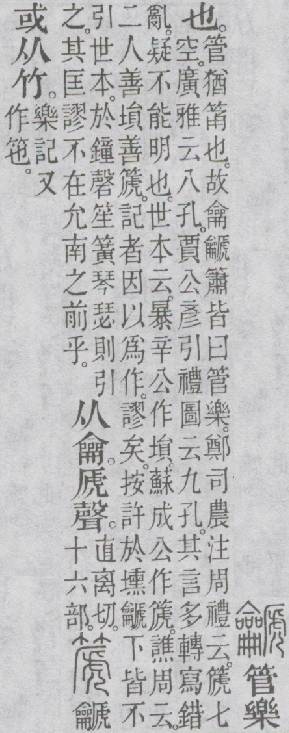 䶵管樂
也。管猶筩也。故龠䶵簫皆曰管樂。鄭司農注周禮云。篪七
空。廣雅云八孔。賈公彥引禮圖云九孔。其言多轉寫錯
亂。疑不能明也。世本云。暴辛公作塤。蘇成公作篪。譙周云。
二人善塤善篪。記者因以爲作。謬矣。按許於壎䶵下皆不
引世本。於鐘磬笙簧琴瑟則引
之。其匡謬不在允南之前乎。
从龠。虒聲。直离切。
十六部。
篪䶵
或从竹。樂記又
作竾。